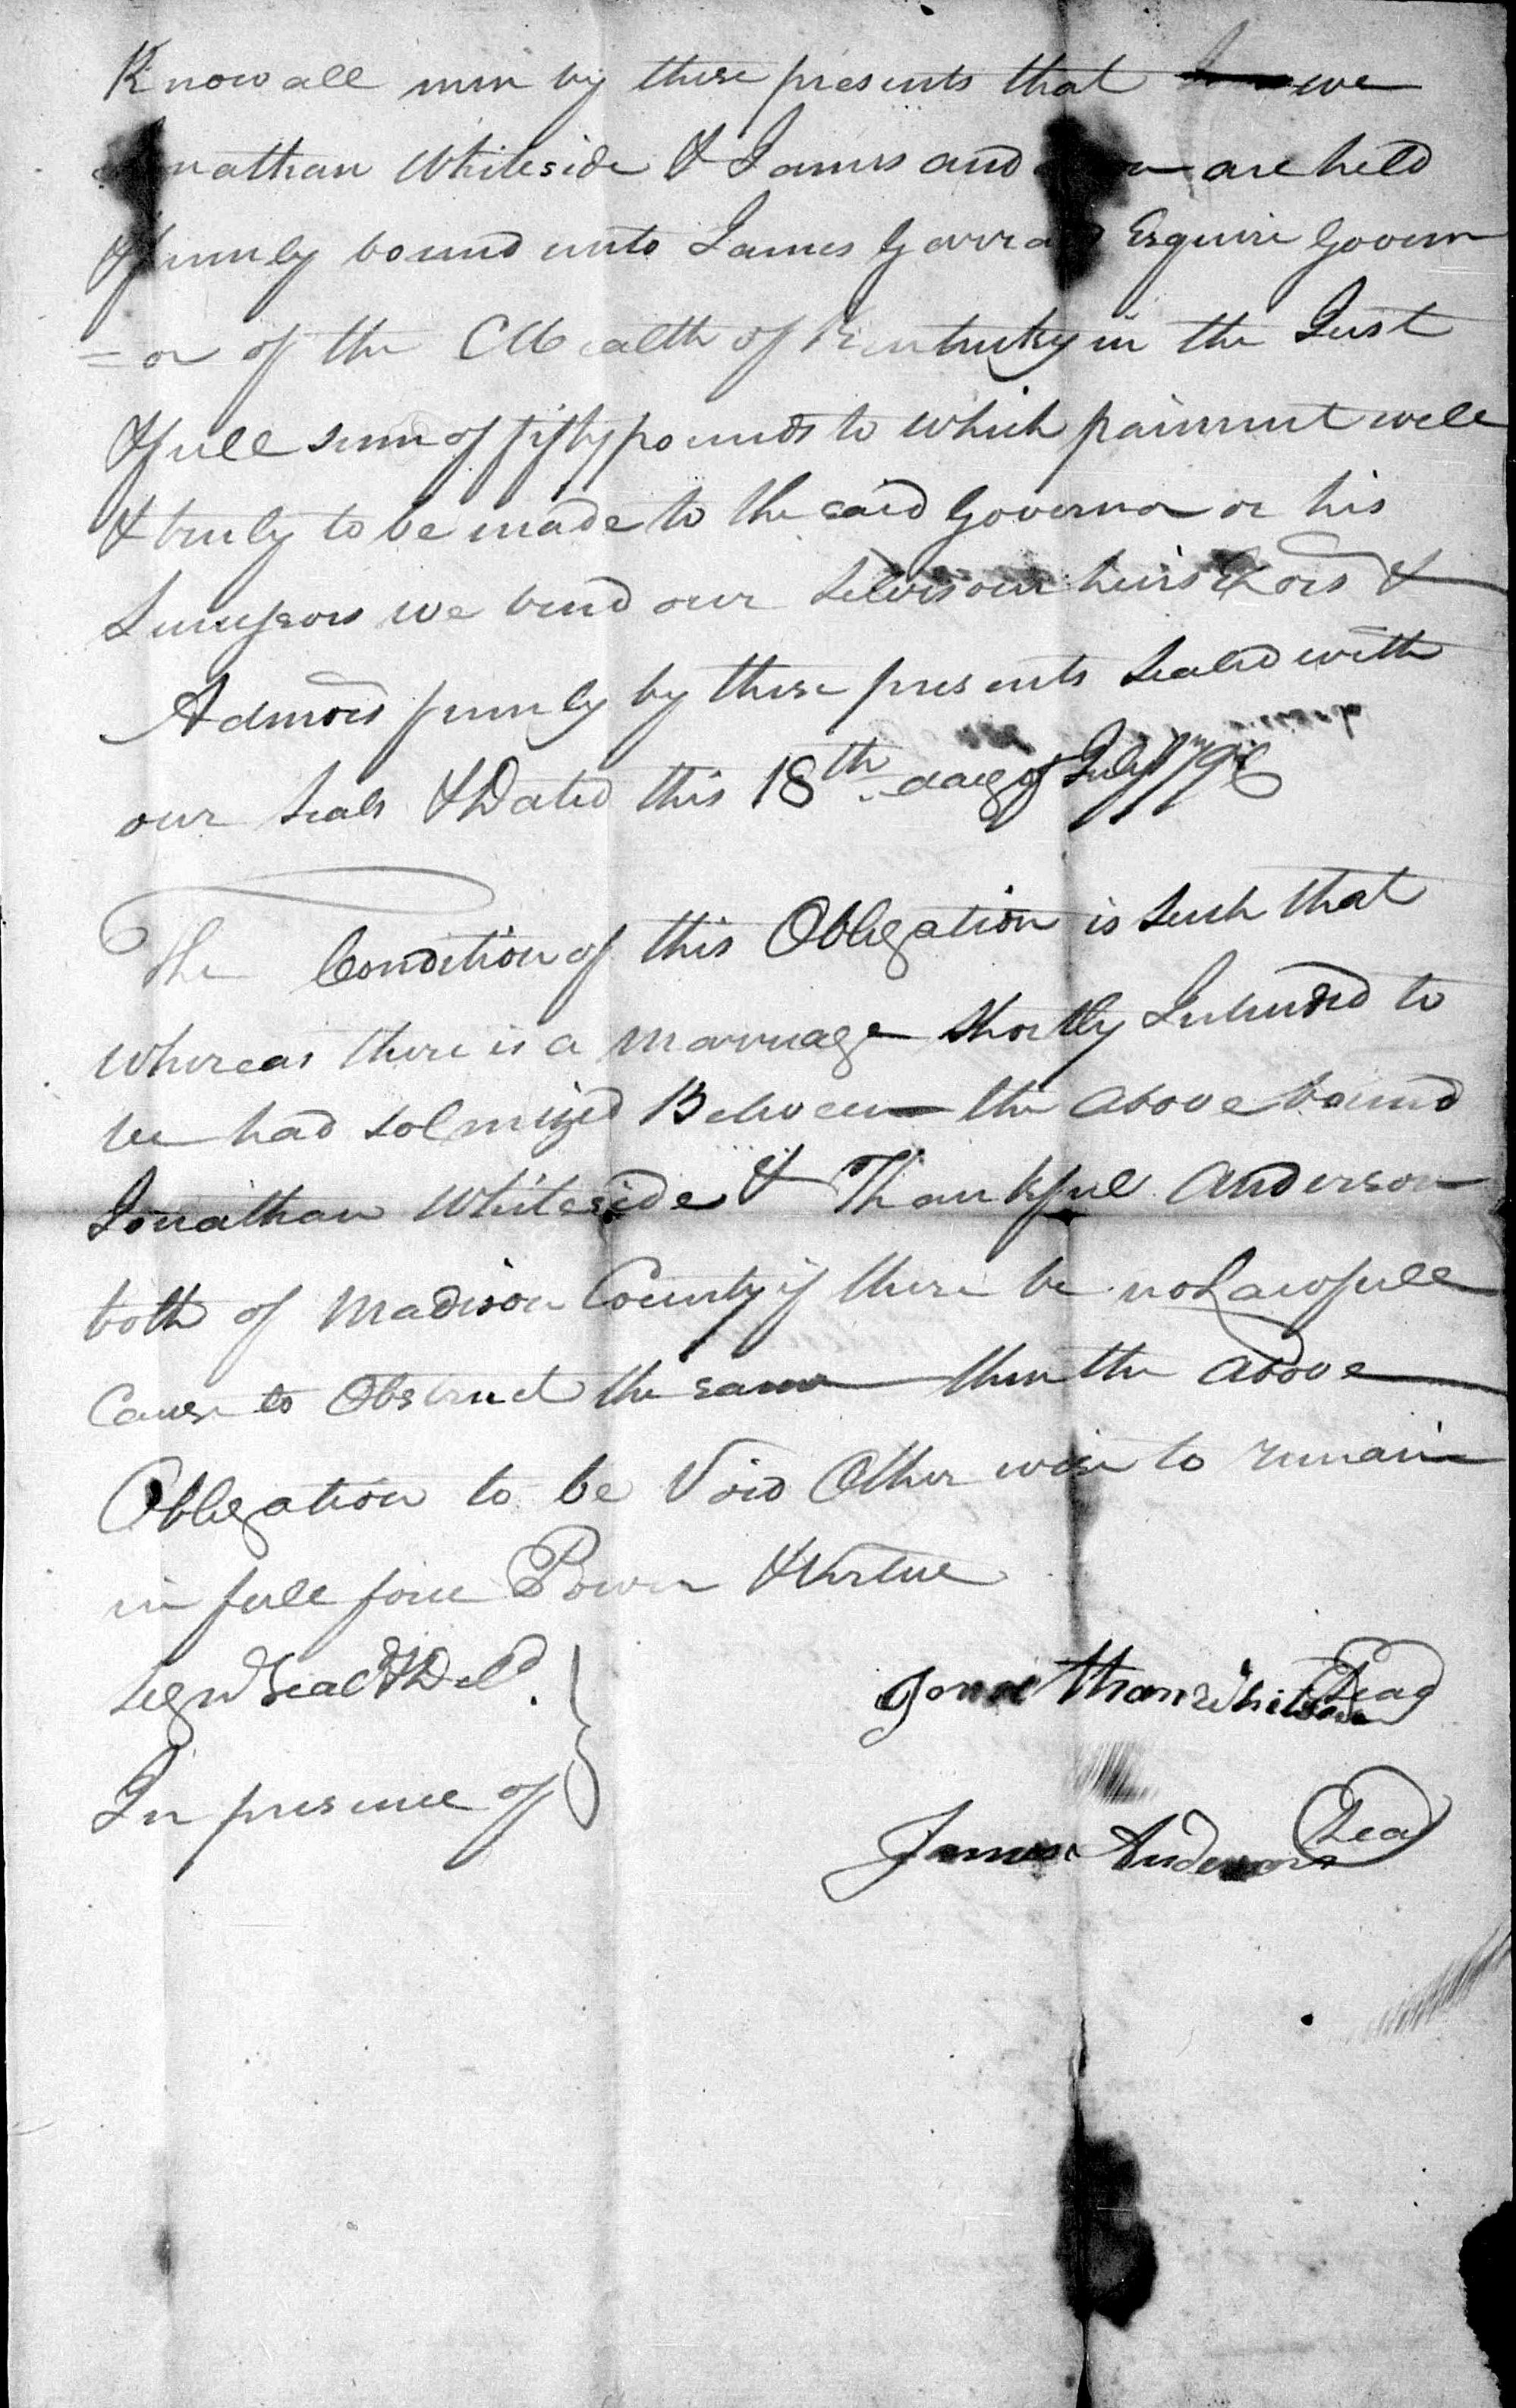 Know all men by these presents that we
Jonathan Whiteside & James and are held
& firmly bound unto James Garrard Esquire Govern
=or of the CWealth of Kentucky in the Just
& full sum of fifty pounds to which paiment well
& truly to be made to the said Governor or his
Sucessors we bind our Selves our heirs Exors &
Admors firmly by these presents Sealed with
our Seals & Dated this 18th day of July
The Condition of this Obligation is Such that
Whereas there is a Marriage Shortly Intended to
be had Solmnized Between the above bound
Jonathan Whiteside & Thankful Anderson
both of Madison County if there be no Lawfull
Cause to Obstruct the same then the above
Obligation to be Void Other wise to remain
in full force Power & Virtue
Segnd Seald & Deld.
In presence of
Jonathan Whiteside Seal
James Anderson Seal